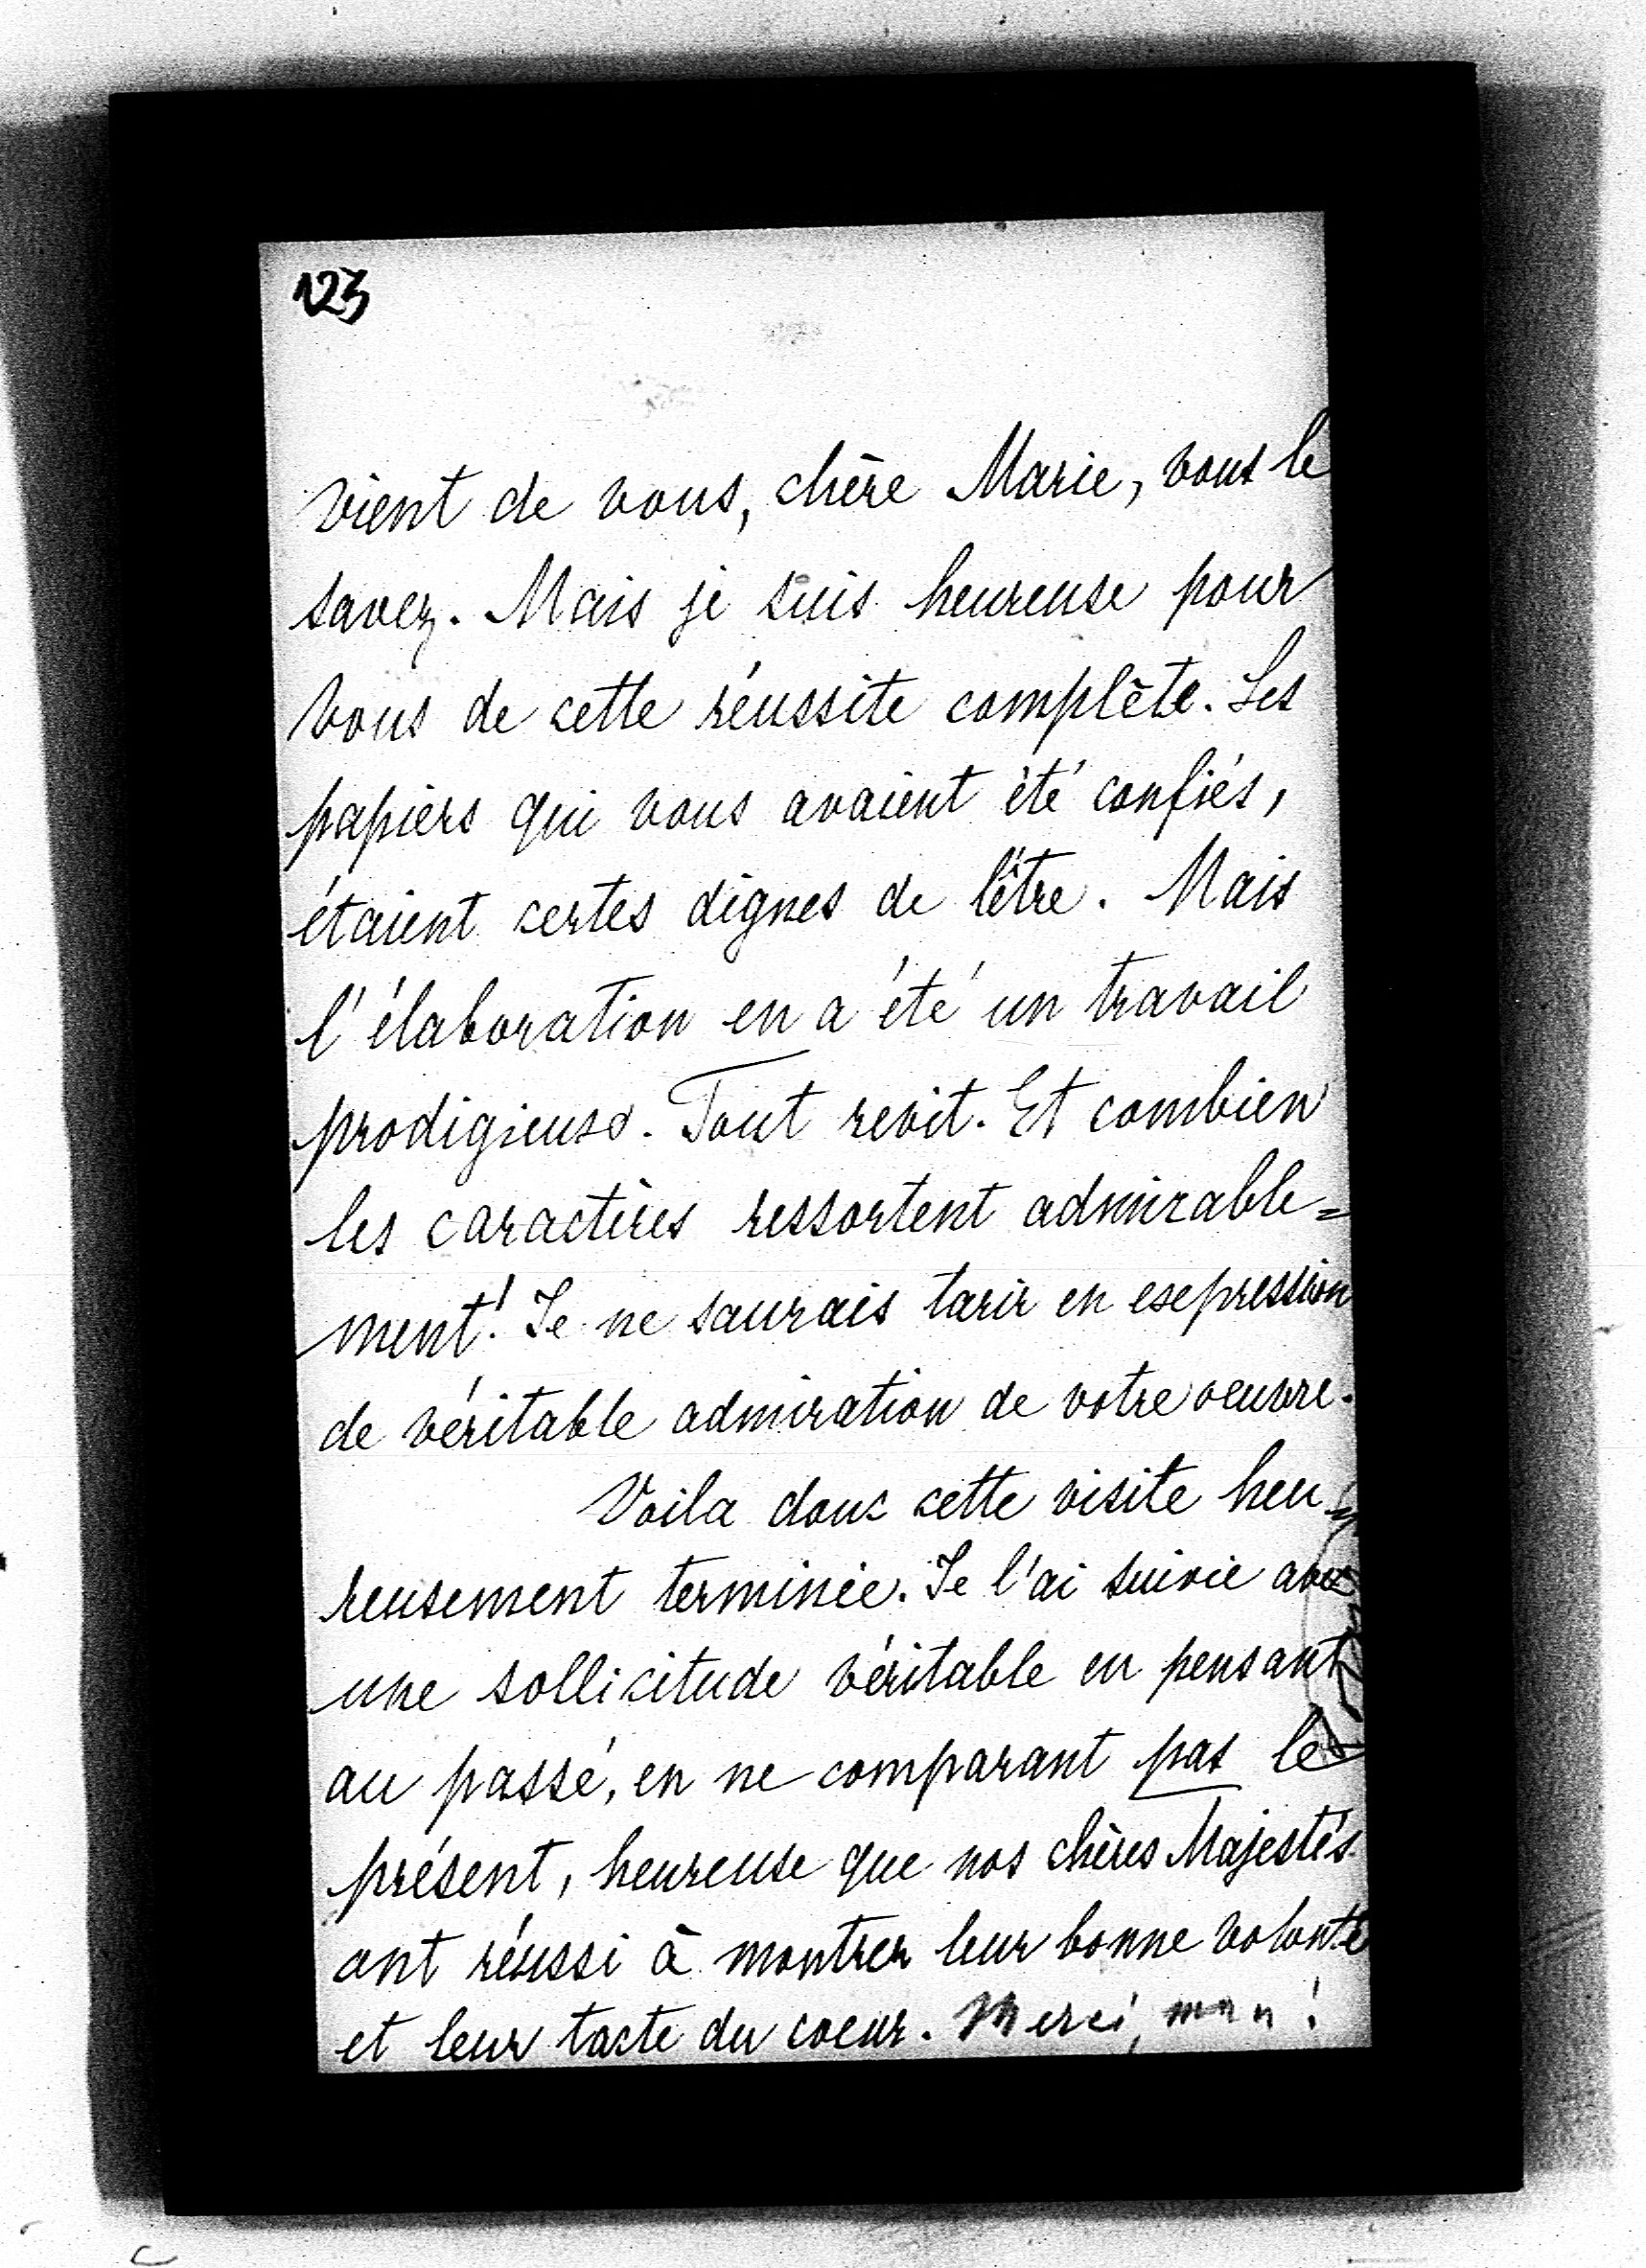 123
vient de vous, chère Marie, vous le
savez. Mais je suis heureuse pour
vous de cette réussite complète. Les
papiers qui vous avaient été confiés,
étaient certes dignes de l'être. Mais
l'élaboration en a été un travail
prodigieuse. Tout revit. Et combien
les caractères ressortent admirable=
ment! Je ne saurais tarir en expression
de véritable admiration de votre oeuvre.
Voila donc cette visite heu
reusement terminée. Je l'ai suivie avec
une sollicitude véritable en pensant
au passé, en ne comparant pas le
présent, heureuse que nos chères Majestés
ont réussi à montrer leur bonne volonté
et leur tacte du coeur. Merci,